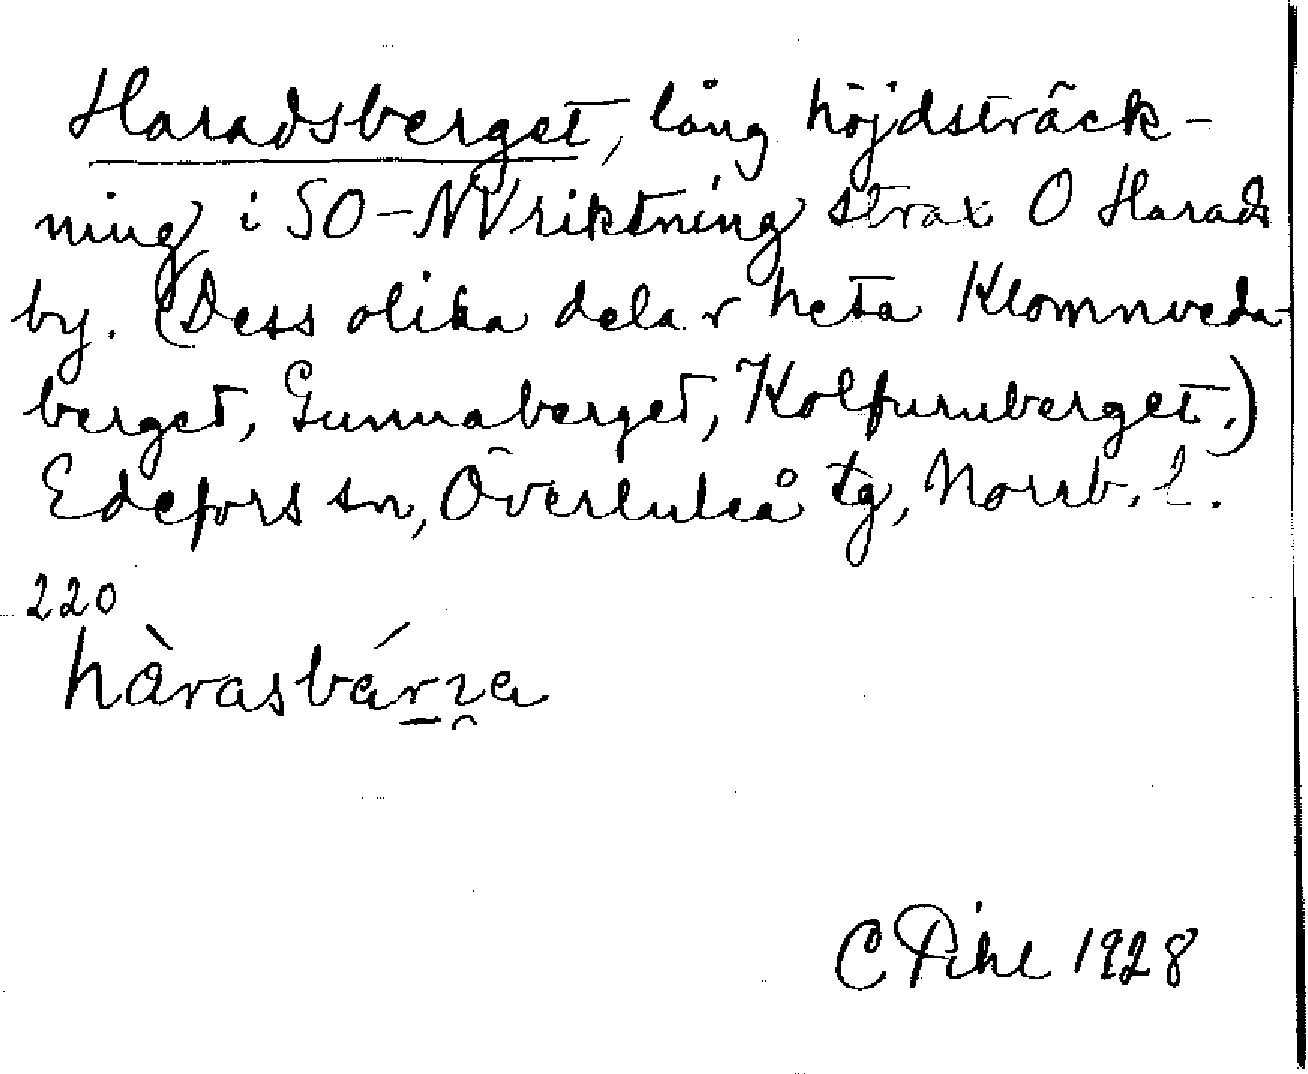 Haradsberget, lång höjdsträck-
ning i SO-NVriktning strax O Harads
by. (Dess olika delar heta Klomnveda-
berget, Gunnaberget, Kolfurnberget.)
Edefors sn, Överluleå tg, Norrb. l.
220
hàrasbá
C Pihl 1928